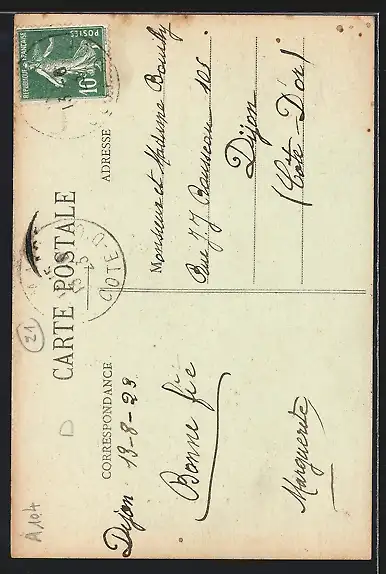 CARTE POSTALE
CORRESPONDANCE
Dijon 13-8-23
Bonne fête
Marguerite
ADRESSE
Monsieur et Madame
Rue J J Rousseau 105
Dijon
(Côte-D'or)
REPUBLIQUE FRANÇAISE
POSTES
10c
COTE D
21
D
A104